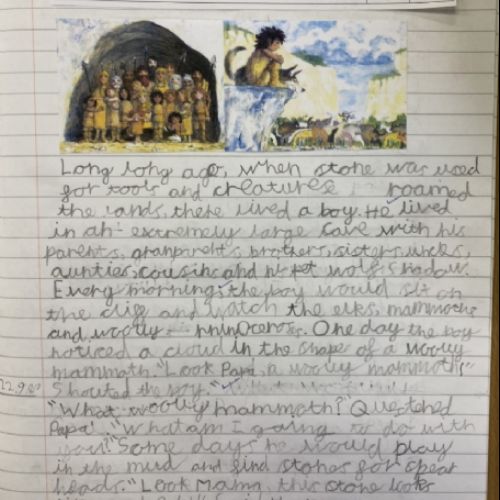 Long long ago, when stone was used
for tools and creatures roamed
the lands, there lived a boy. He lived
in an extremely large cave with his
parents, granparents, brothers, sisters, uncles,
aunties, cousins and his pet wolf, shadow.
Every morning, the boy would sit on
the clig and watch the elks, mammoths
and woolly rhinoceroses. One day the boy
noticed a cloud in the shape of a woolly
mammoth. "Look Papa, a woolly mammoth"
Shouted the boy.
"What woolly mammoth?" Questened
Papa. "What am I going to do with
you?" Some days he would play
in the mud and find stones for spear
heads. "Look Mama, this stone looks